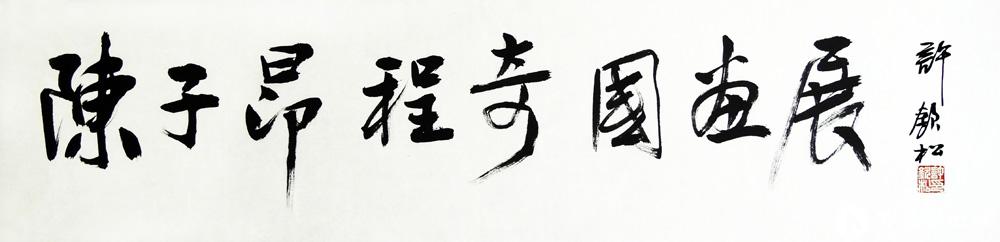 陳子昂 程奇國畫展
許欽松